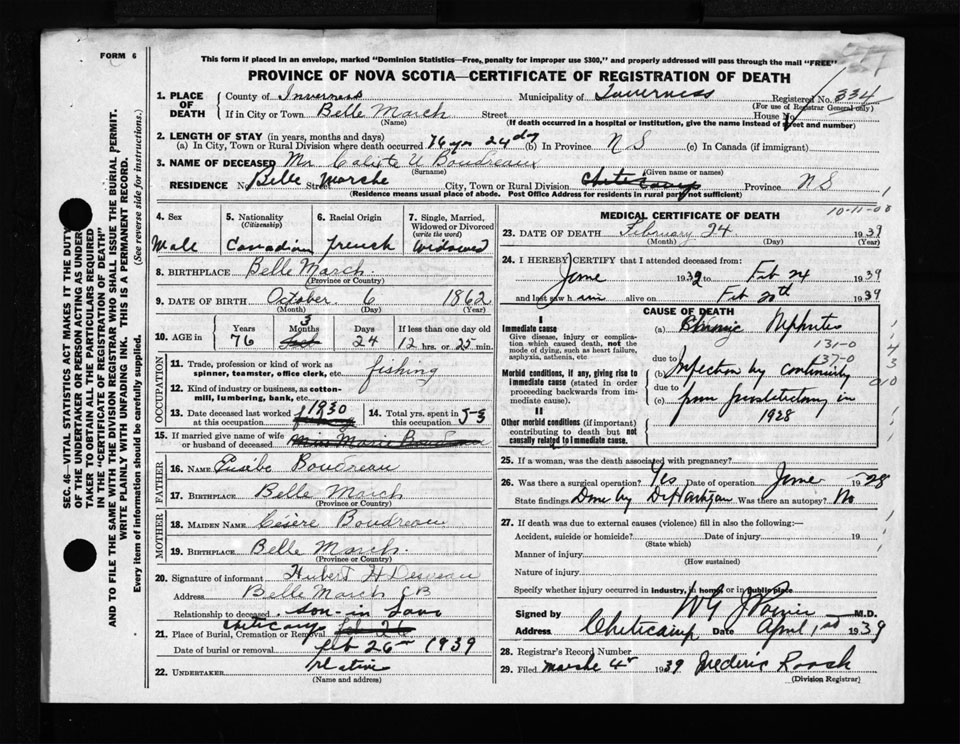 FORM 6
This form if placed in an envelope, marked "Dominion Statistics—Free, penalty for improper use $300," and properly addressed will pass through the mail "FREE"
PROVINCE OF NOVA SCOTIA—CERTIFICATE OF REGISTRATION OF DEATH
1. PLACE OF DEATH
County of Inverness Municipality of Inverness Registered No. 334
(For use of Registrar General only)
If in City or Town Belle March Street House No.
(Name) (If death occurred in a hospital or institution, give the name instead of street and number)
2. LENGTH OF STAY (in years, months and days)
(a) In City, Town or Rural Division where death occurred 76 yr 24 dy (b) In Province N S (c) In Canada (if immigrant)
3. NAME OF DECEASED Mr Calixte U Boudreau
(Surname) (Given name or names)
RESIDENCE No. Belle Marche Street City, Town or Rural Division Cheticamp Province N S
(Residence means usual place of abode. Post Office Address for residents in rural parts not sufficient)
4. Sex
Male
5. Nationality (Citizenship)
Canadian
6. Racial Origin
french
7. Single, Married, Widowed or Divorced (write the word)
Widowed
8. BIRTHPLACE Belle March
(Province or Country)
9. DATE OF BIRTH October 6 1862
(Month) (Day) (Year)
10. AGE in Years Months Days If less than one day old
76 3 24 12 hrs. or 25 min.
OCCUPATION
11. Trade, profession or kind of work as spinner, teamster, office clerk, etc. fishing
12. Kind of industry or business, as cotton-mill, lumbering, bank, etc.
13. Date deceased last worked at this occupation 1930
14. Total yrs. spent in this occupation 53
15. If married give name of wife or husband of deceased Miss Marie Boudreau
FATHER
16. NAME Eusèbe Boudreau
17. BIRTHPLACE Belle March
(Province or Country)
MOTHER
18. MAIDEN NAME Césère Boudreau
19. BIRTHPLACE Belle March.
(Province or Country)
20. Signature of informant Hubert H Deveau
Address Belle March CB
Relationship to deceased son-in Law
21. Place of Burial, Cremation or Removal Cheticamp Feb 26
Date of burial or removal feb 26 1939
22. UNDERTAKER relative
(Name and address)
MEDICAL CERTIFICATE OF DEATH
10-11-00
23. DATE OF DEATH February 24 1939
(Month) (Day) (Year)
24. I HEREBY CERTIFY that I attended deceased from:
June 1932 to Feb 24 1939
and last saw him alive on Feb 20th 1939
CAUSE OF DEATH
I
Immediate cause
Give disease, injury or complication which caused death, not the mode of dying, such as heart failure, asphyxia, asthenia, etc
(a) Chronic Nephritis
131-0
137-0
due to
Morbid conditions, if any, giving rise to immediate cause (stated in order proceeding backwards from immediate cause).
(b) Infection by continuity
due to
(c) from prostatectomy in
1928
II
Other morbid conditions (if important) contributing to death but not causally related to immediate cause.
25. If a woman, was the death associated with pregnancy?
26. Was there a surgical operation? Yes Date of operation June 1928
State findings Done by Dr Hartigan Was there an autopsy? No
27. If death was due to external causes (violence) fill in also the following:—
Accident, suicide or homicide? Date of injury 19
(State which)
Manner of injury
(How sustained)
Nature of injury
Specify whether injury occurred in industry, in home, or in public place
Signed by M.D.
Address Cheticamp Date April 1st 1939
28. Registrar's Record Number
29. Filed marche 4 1939 Frederic Roach
(Division Registrar)
SEC. 46—VITAL STATISTICS ACT MAKES IT THE DUTY
OF THE UNDERTAKER OR PERSON ACTING AS UNDERTAKER
TO OBTAIN ALL THE PARTICULARS REQUIRED
IN THE "CERTIFICATE OF REGISTRATION OF DEATH"
AND TO FILE THE SAME WITH THE DIVISION REGISTRAR WHO SHALL ISSUE THE BURIAL PERMIT.
WRITE PLAINLY WITH UNFADING INK. THIS IS A PERMANENT RECORD.
Every item of information should be carefully supplied. (See reverse side for instructions.)